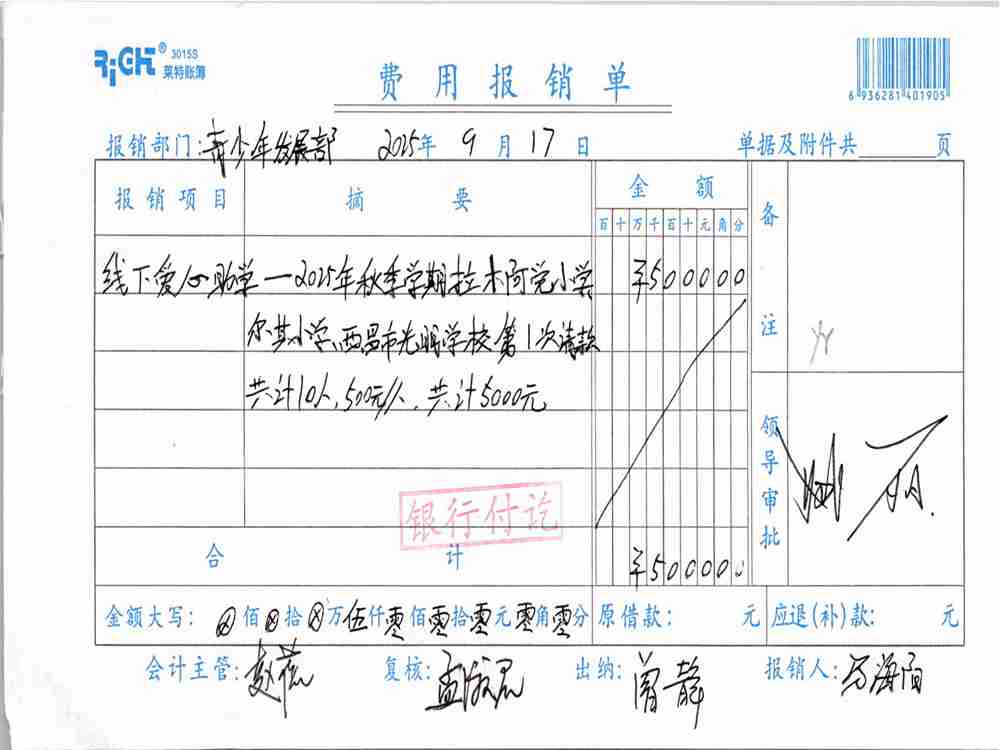 RiCH® 3015S
莱特账簿
费用报销单
6 936281 401905
报销部门:青少年发展部 2025年 9月 17日 单据及附件共 页
报销项目 摘要 金额 备注
百十万千百十元角分
线下爱心助学—2025年秋季学期拉木阿觉小学 ¥500000
尔其小学、西昌市光明学校第1次请款
共计10人,500元/人,共计5000元
领导审批
银行付讫
合计 ¥500000
金额大写: ⊗佰⊗拾⊗万伍仟零佰零拾零元零角零分 原借款: 元 应退(补)款: 元
会计主管: 复核: 出纳:曾静 报销人:马海